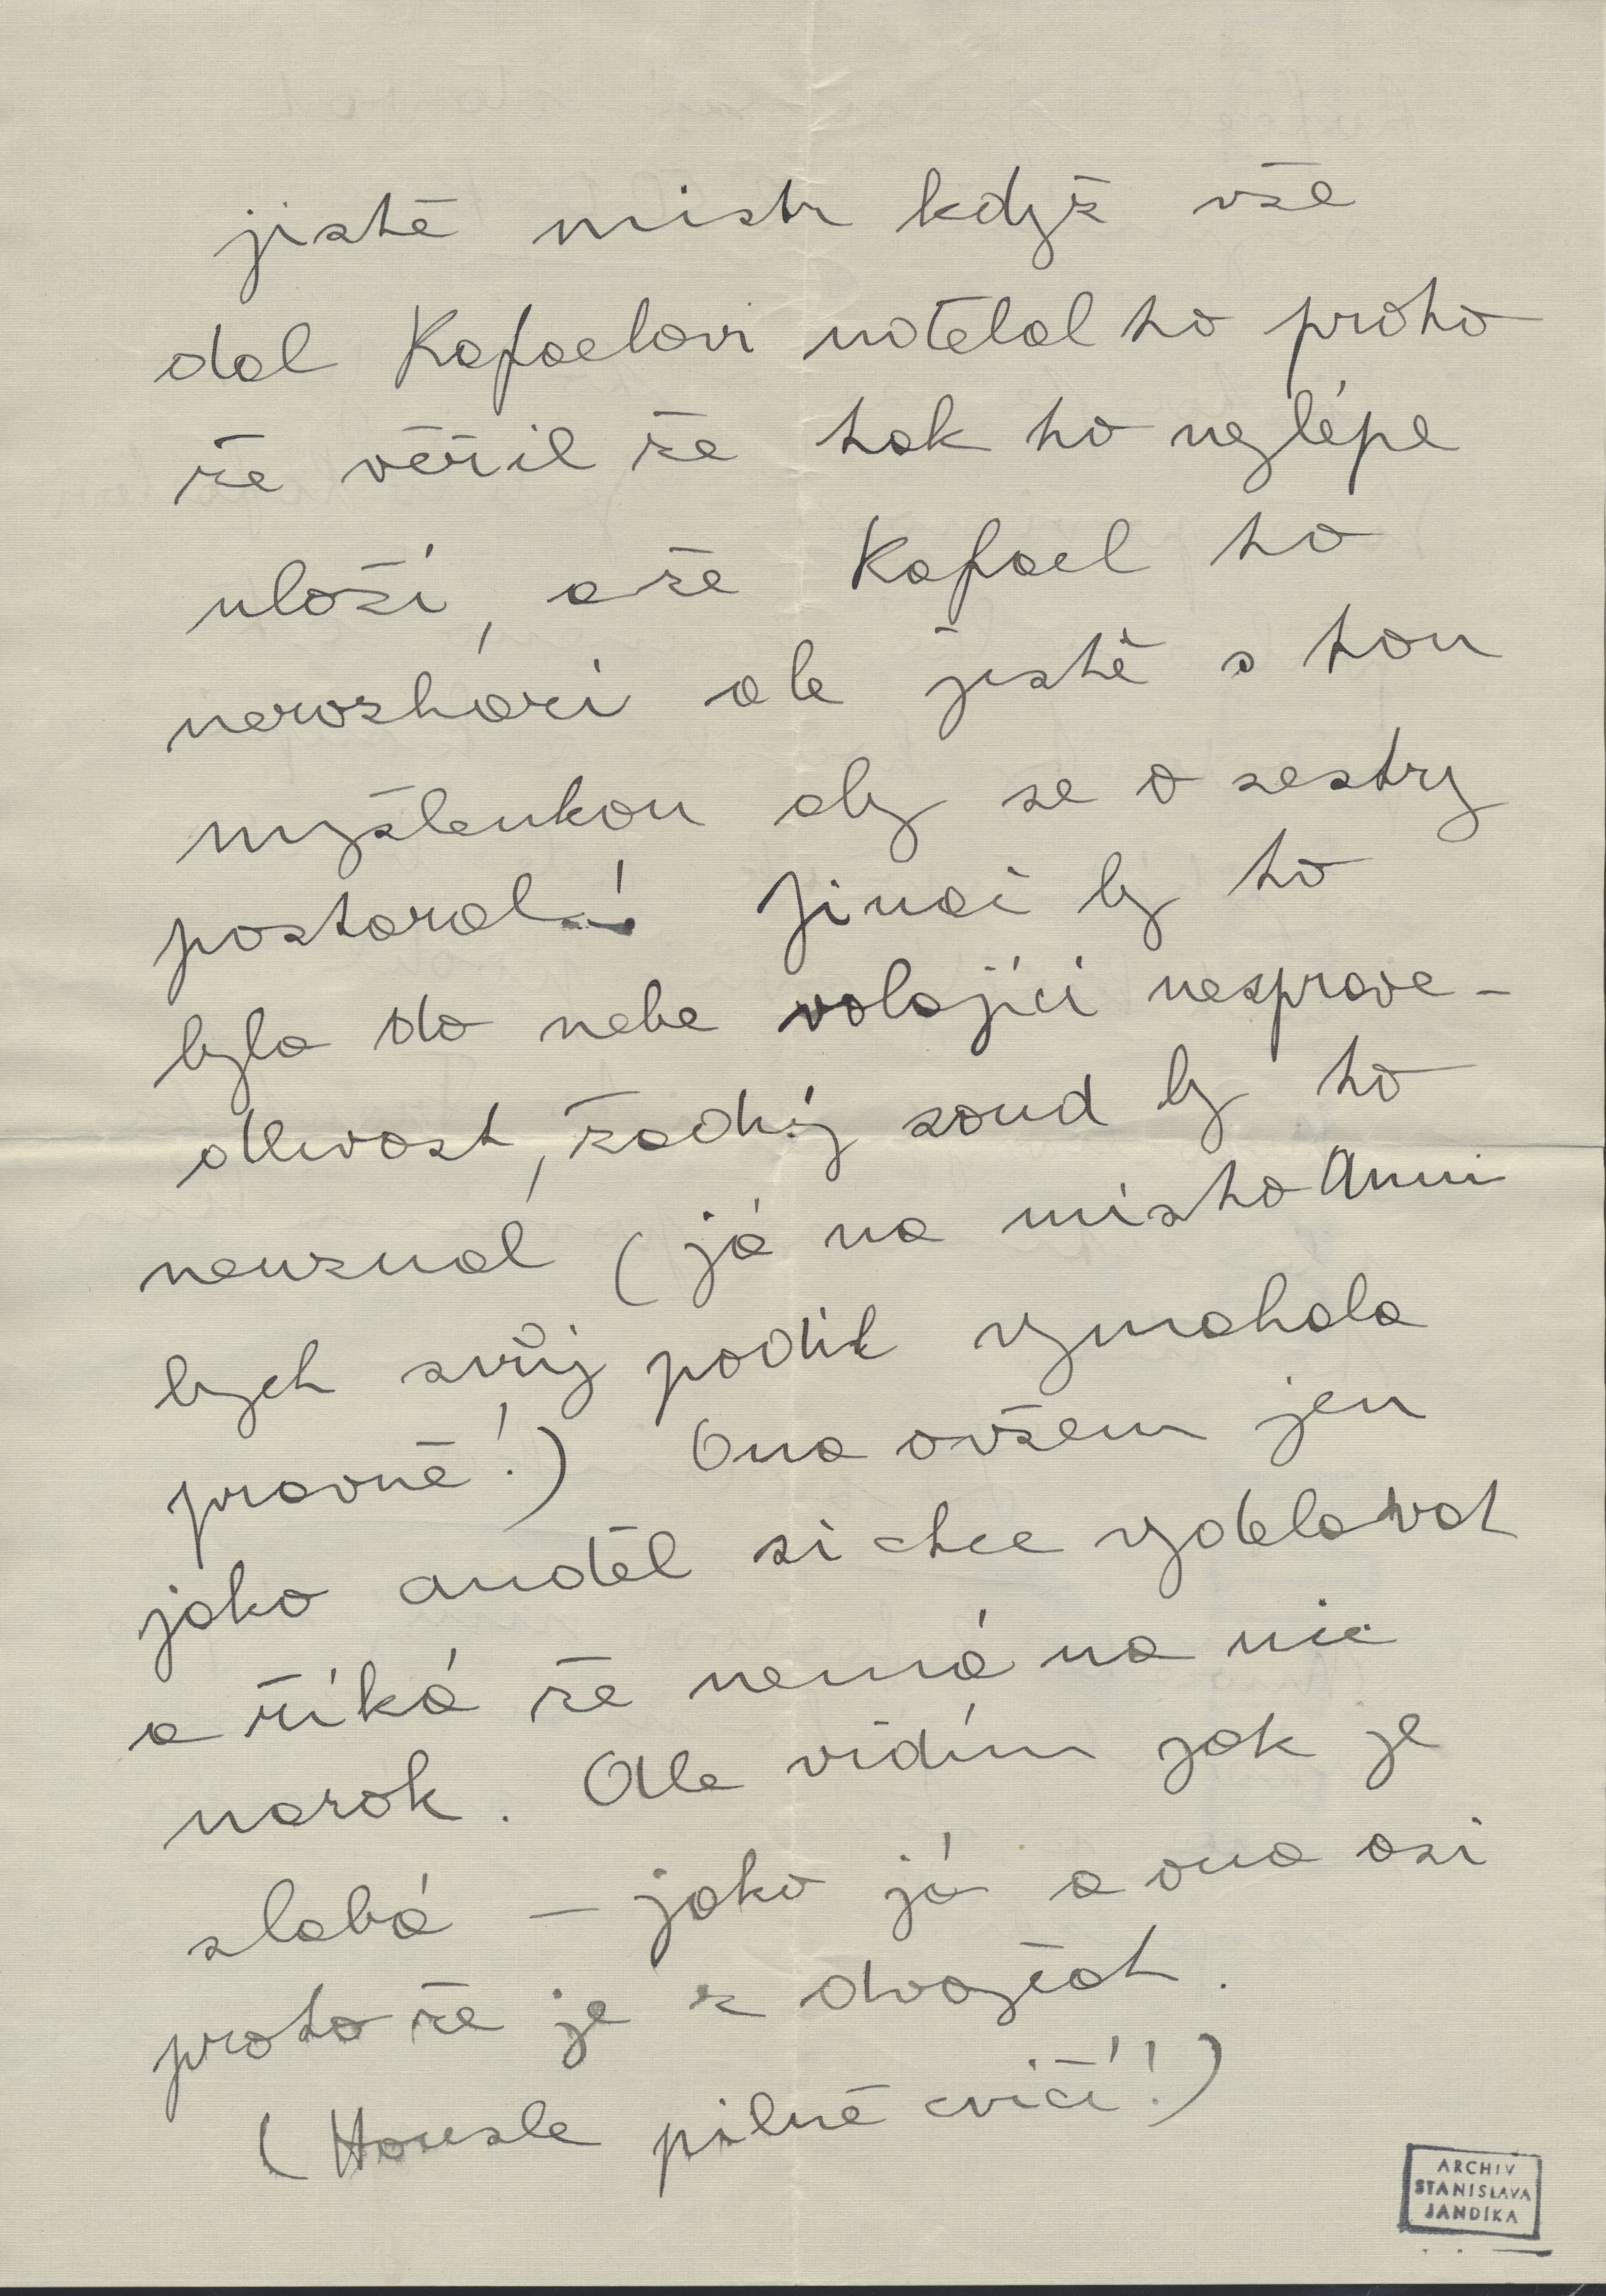 jistě mistr když vše
dal Rafaelovi udělal to proto
že věřil že tak to nejlépe
uloží, a že Rafael to
nerozhází ale jistě s tou
myšlenkou aby se o sestry
postaral! Jinač by to
byla do nebe volající nesprave-
dlivost, žadný soud by to
neuznal (já na místo Anni
bych svůj podíl vymahala
pravně!) Ona ovšem jen
jako anděl si chce vydělavat
a říká že nemá na nic
narok. Ale vidím jak je
slabá – jako já a ona asi
proto že je z dvojčat.
(Housle pilně cvičí!)
ARCHIV
STANISLAVA
JANDÍKA